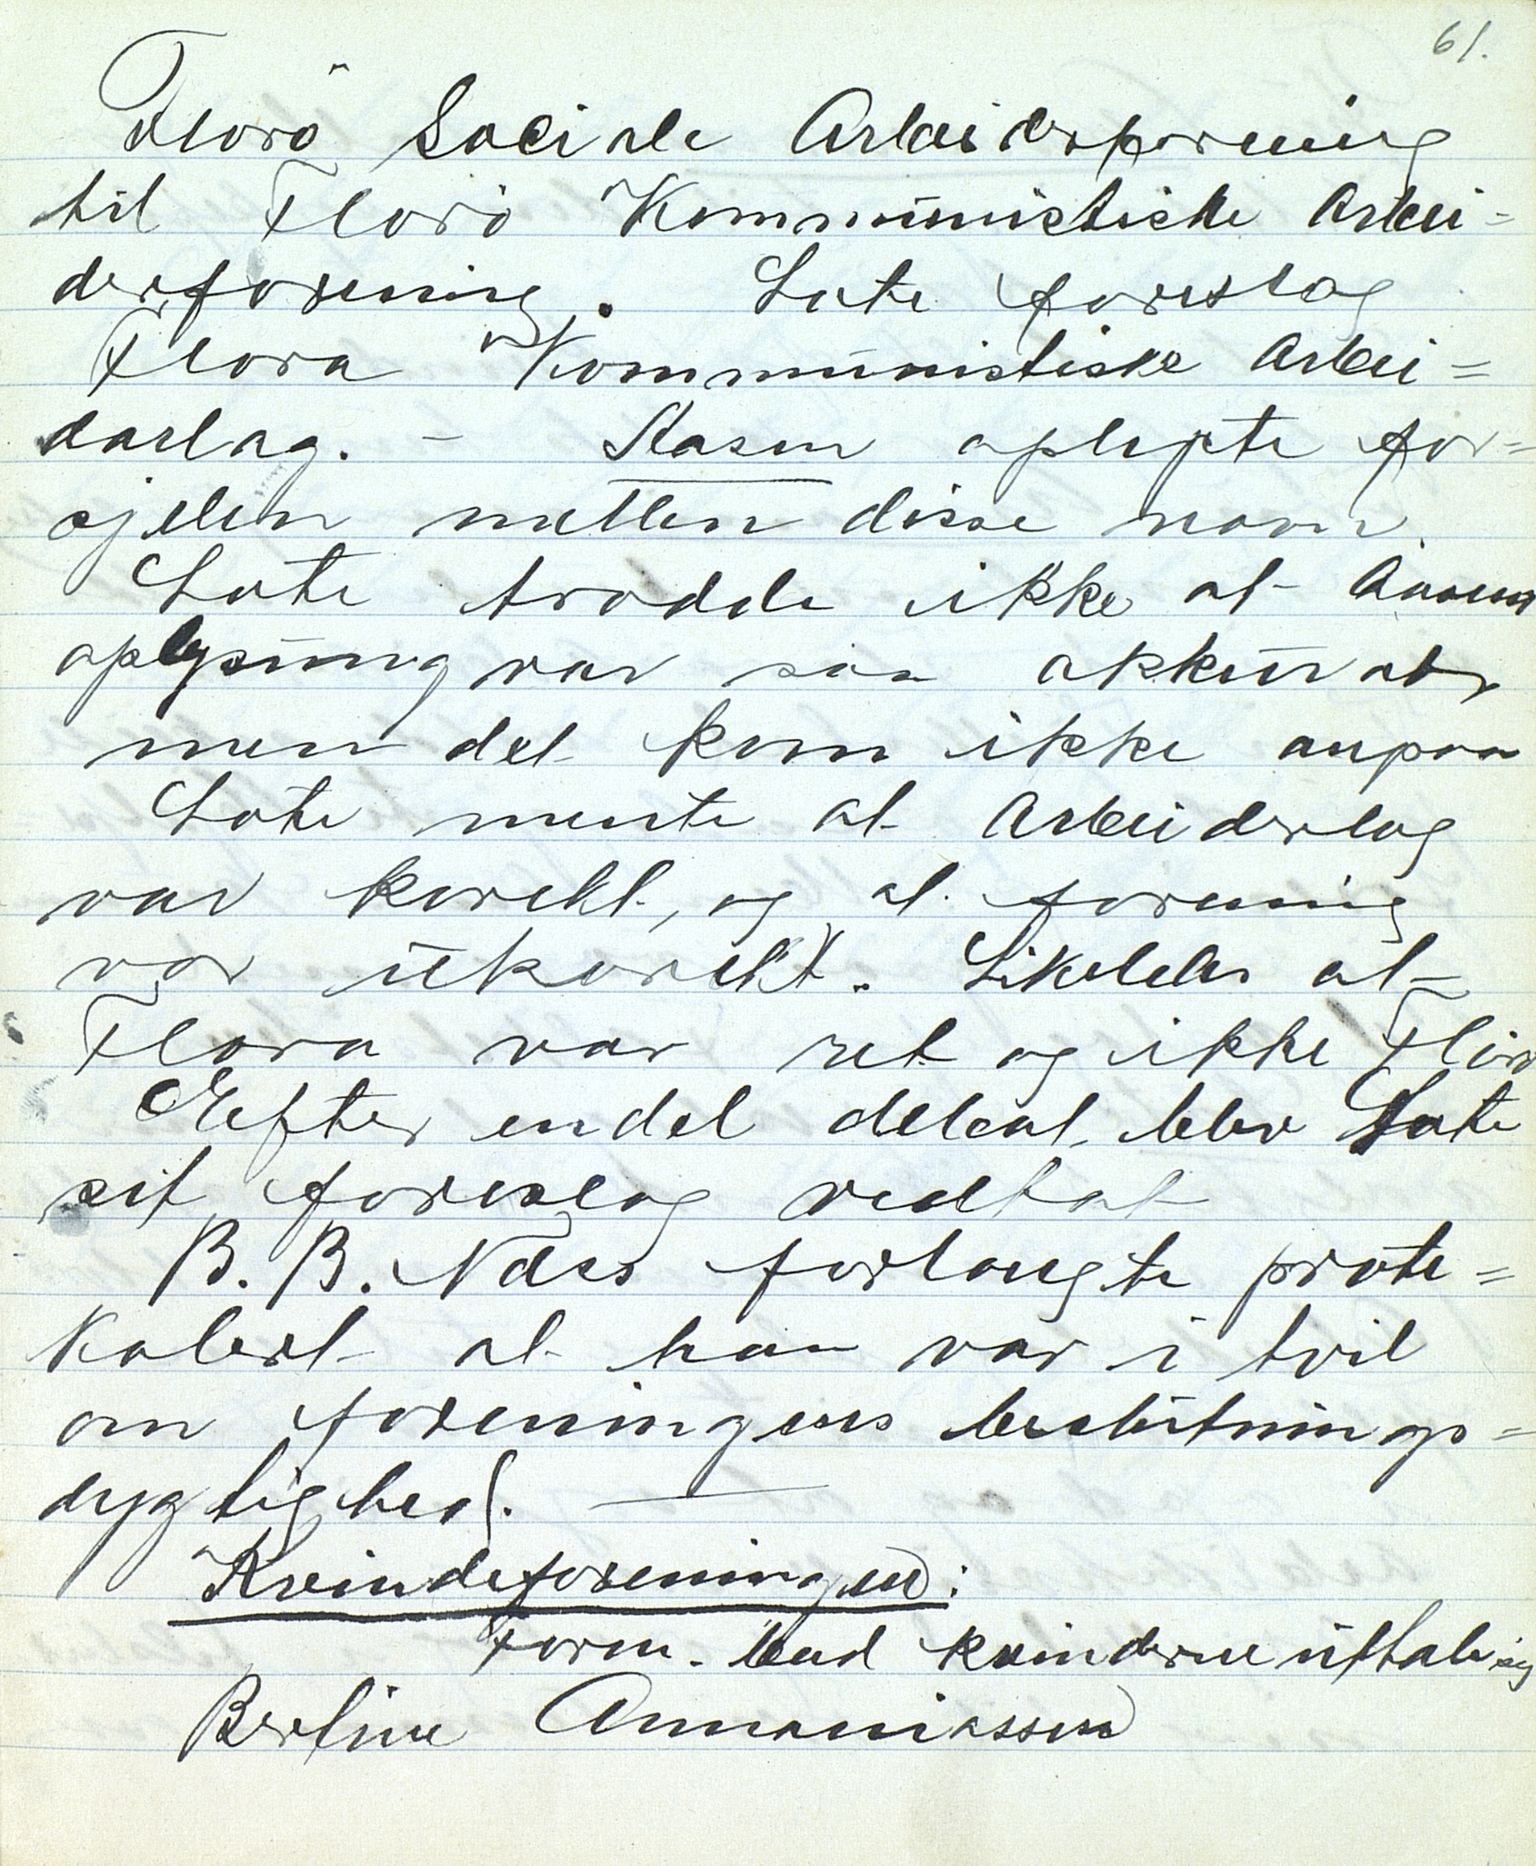 61.
Florö Sociale Arbeiderforening
til Florö Kommunistiske Arbei-
derforening. Lote foreslog
Flora Kommunistiske Arbei=
darlag. - Aasen oplyste for=
sjelen mellen disse navn.
Lote trodde ikke at Aasens
oplysning var saa akkurat
men det kom ikke anpaa
Lote mente at Arbeiderlag
var korekt, og at forening
var ukorekt. Likeledes at
Flora var ret og ikke Florö
Efter endel debat blev Lote
sit foreslag vedtat
B. B. Næss forlangte proto=
kolert at han var i tvil
om foreningens beslutnings=
dygtighed.
Kvindeforeningen:
Form. bad kvinderne uttale sig
Bertine Annaniassen